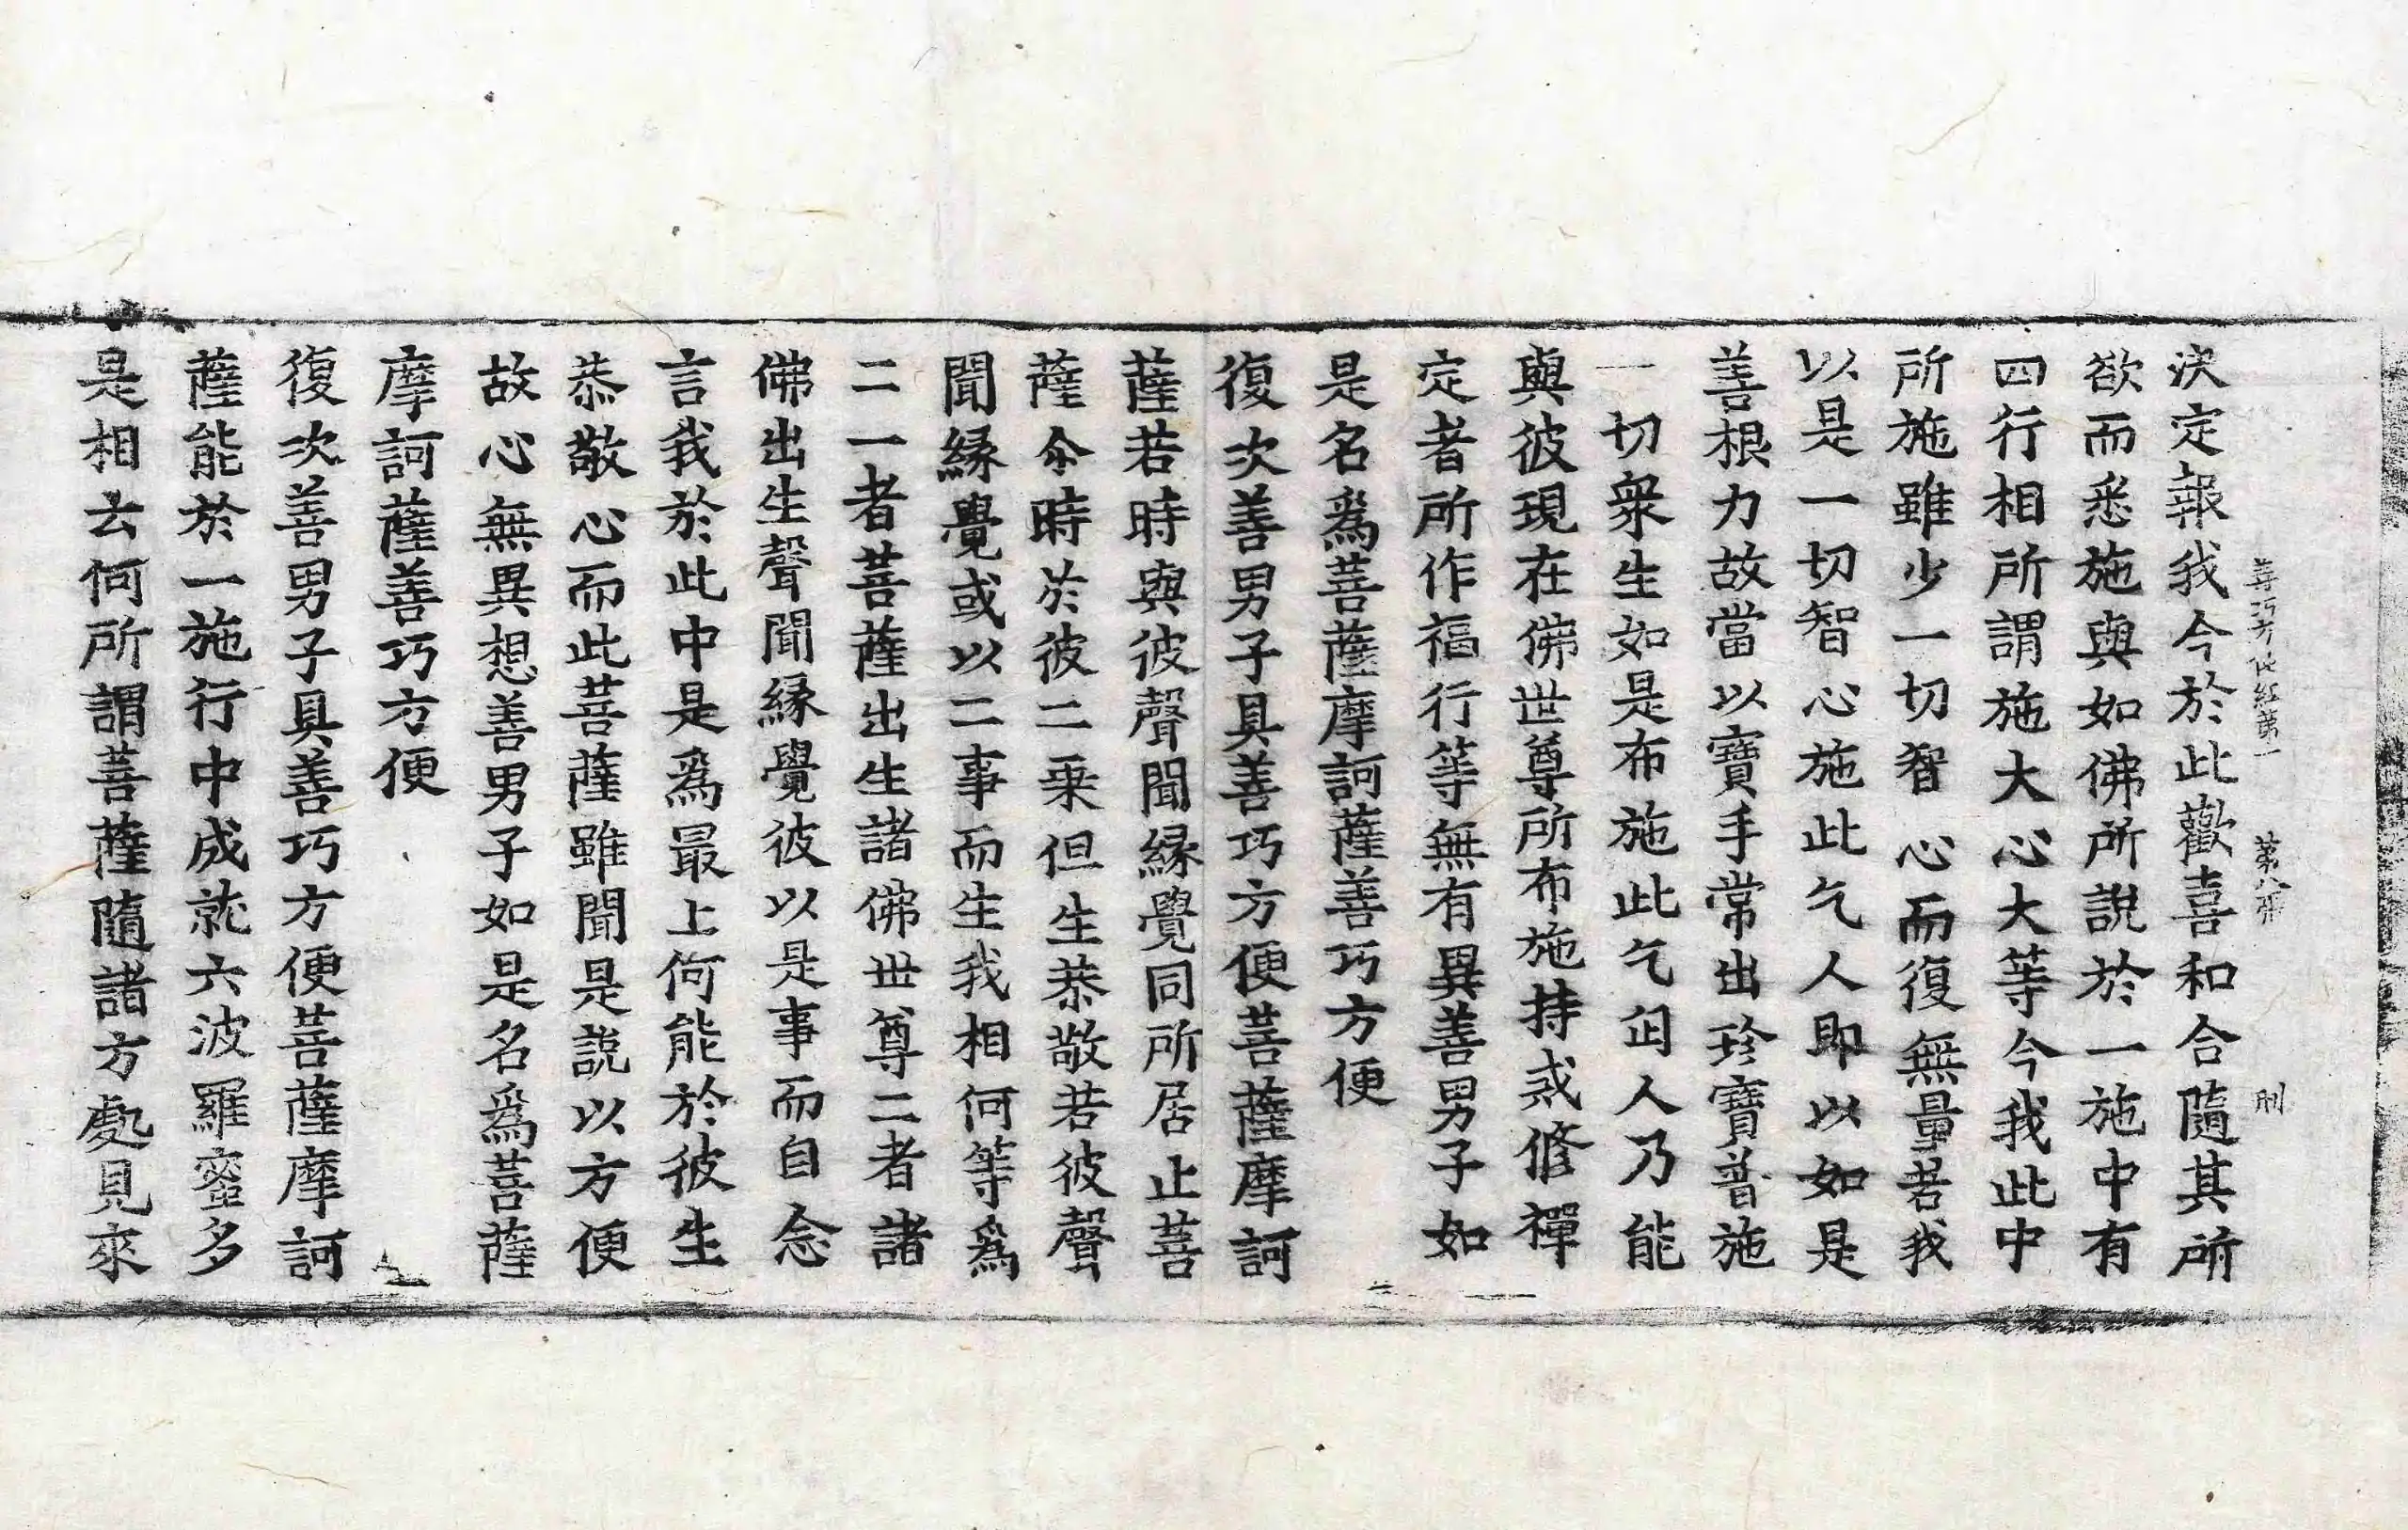 善巧方便經第一 第八張 刖
決定報我今於此歡喜和合隨其所
欲而悉施與如佛所說於一施中有
四行相所謂施大心大等今我此中
所施雖少一切智心而復無量若我
以是一切智心施此乞人即以如是
善根力故當以寶手常出珍寶普施
一切衆生如是布施此乞匃人乃能
與彼現在佛世尊所布施持戒修禪
定者所作福行等無有異善男子如
是名爲菩薩摩訶薩善巧方便
復次善男子具善巧方便菩薩摩訶
薩若時與彼聲聞緣覺同所居止菩
薩尒時於彼二乘但生恭敬若彼聲
聞緣覺或以二事而生我相何等爲
二一者菩薩出生諸佛世尊二者諸
佛出生聲聞緣覺彼以是事而自念
言我於此中是爲最上何能於彼生
恭敬心而此菩薩雖聞是說以方便
故心無異想善男子如是名爲菩薩
摩訶薩善巧方便
復次善男子具善巧方便菩薩摩訶
薩能於一施行中成就六波羅蜜多
是相去何所謂菩薩隨諸方處見來